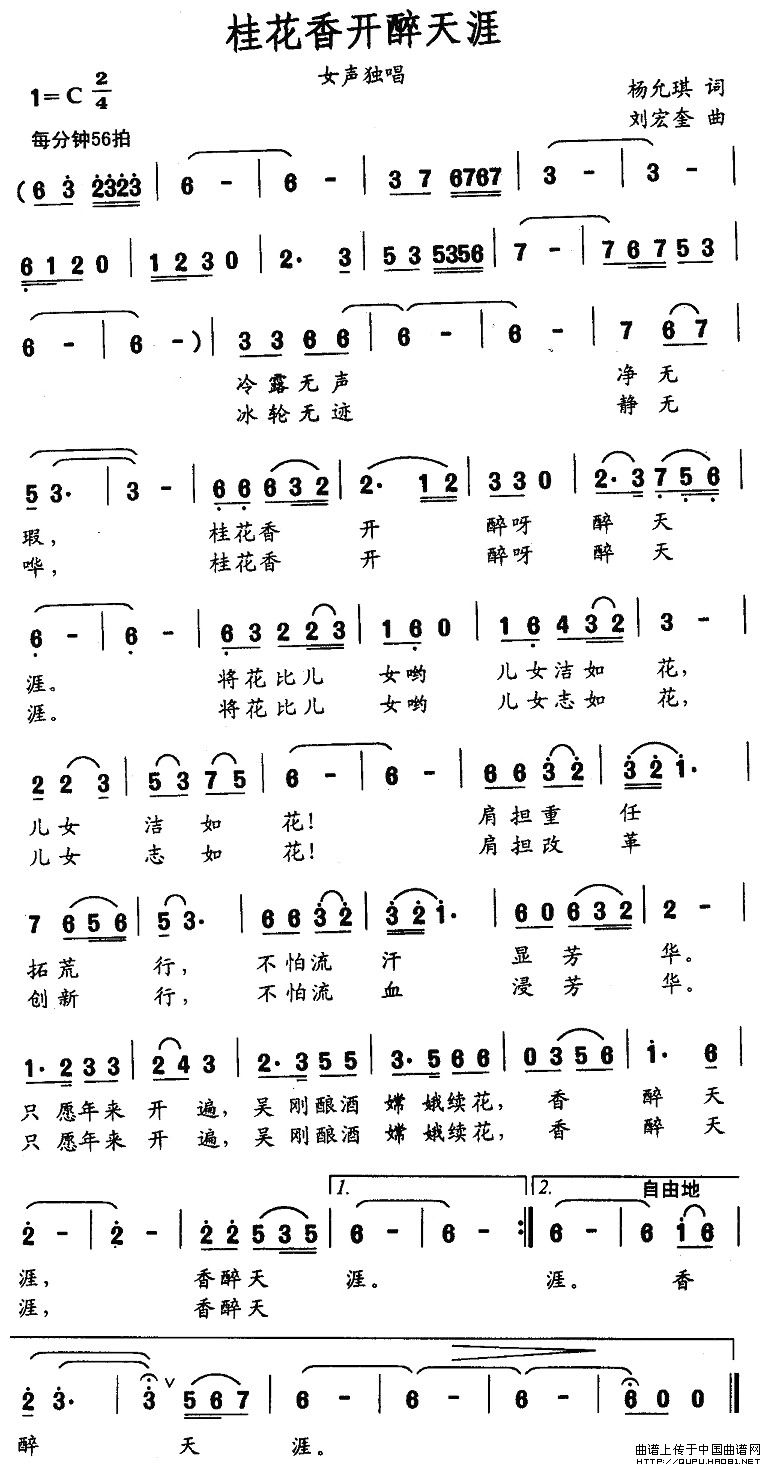 桂花香开醉天涯
女声独唱
1=C 2/4
杨允琪 词
刘宏奎 曲
每分钟56拍
(6 3 2323 | 6 - | 6 - | 3 7 6767 | 3 - | 3 - |
6120 | 1230 | 2· 3 | 53 5356 | 7 - | 76753 |
6 - | 6 - ) | 33 66 | 6 - | 6 - | 7 67 |
冷露无声 净无
冰轮无迹 静无
5 3· | 3 - | 66 632 | 2· 12 | 330 | 2·3 756 |
瑕, 桂花香 开 醉呀 醉 天
哗, 桂花香 开 醉呀 醉 天
6 - | 6 - | 63 223 | 160 | 16 432 | 3 - |
涯。 将花比儿 女哟 儿女洁如 花,
涯。 将花比儿 女哟 儿女志如 花,
2 2 3 | 53 75 | 6 - | 6 - | 66 32 | 32 1· |
儿女 洁 如 花! 肩担重 任
儿女 志 如 花! 肩担改 革
7 656 | 5 3· | 66 32 | 32 1· | 60 632 | 2 - |
拓荒 行, 不怕流 汗 显芳 华。
创新 行, 不怕流 血 浸芳 华。
1·2 33 | 24 3 | 2·3 55 | 3·5 66 | 03 56 | 1· 6 |
只愿年来 开 遍, 吴刚酿酒 嫦娥续花, 香 醉天
只愿年来 开 遍, 吴刚酿酒 嫦娥续花, 香 醉天
1. 2. 自由地
2 - | 2 - | 22 535 | 6 - | 6 - :‖ 6 - | 6 16 |
涯, 香醉天 涯。 涯。 香
涯, 香醉天
2 3· | 3 ∨ 567 | 6 - | 6 - | 6 - | 6 0 0 ‖
醉 天 涯。
曲谱上传于中国曲谱网
HTTP://QUPU.HAO81.NET